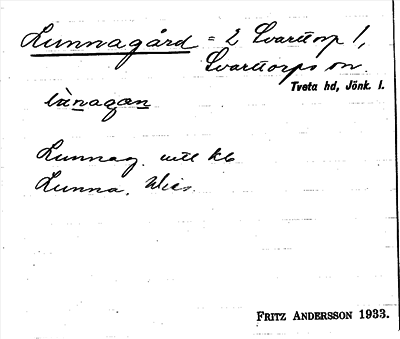 Lunnagård = 2 Svarttorp 1,
Svarttorps sn.
Tveta hd, Jönk. l.
lùnagan
Lunnag. utt kb
Lunna, Wies.
FRITZ ANDERSSON 1933.